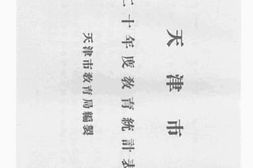 天津市
二十年度教育統計表
天津市教育局編製